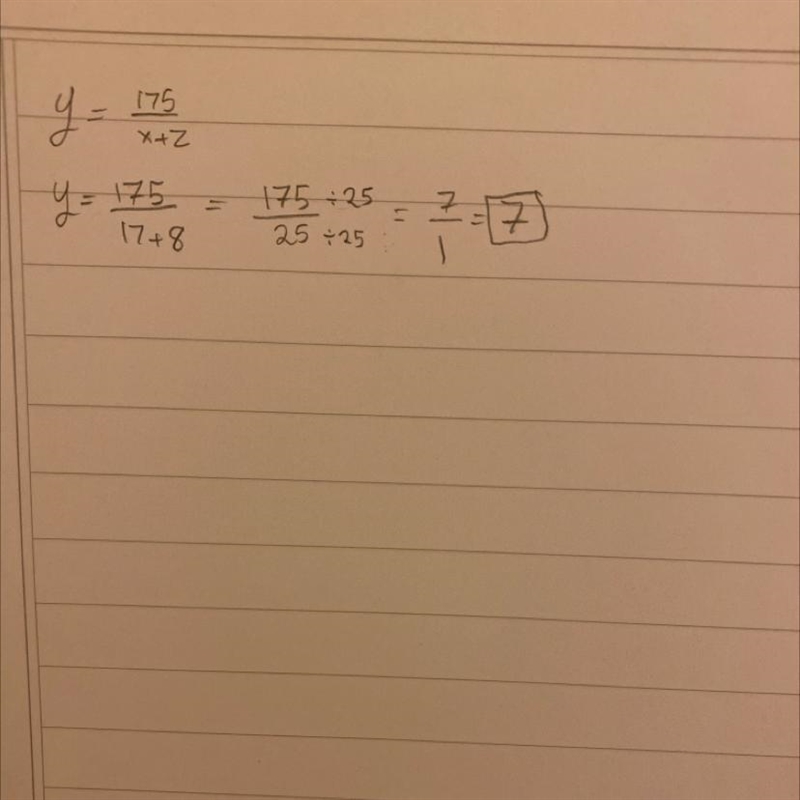 y = 175/x+z
y = 175/17+8 = 175÷25/25÷25 = 7/1 = 7